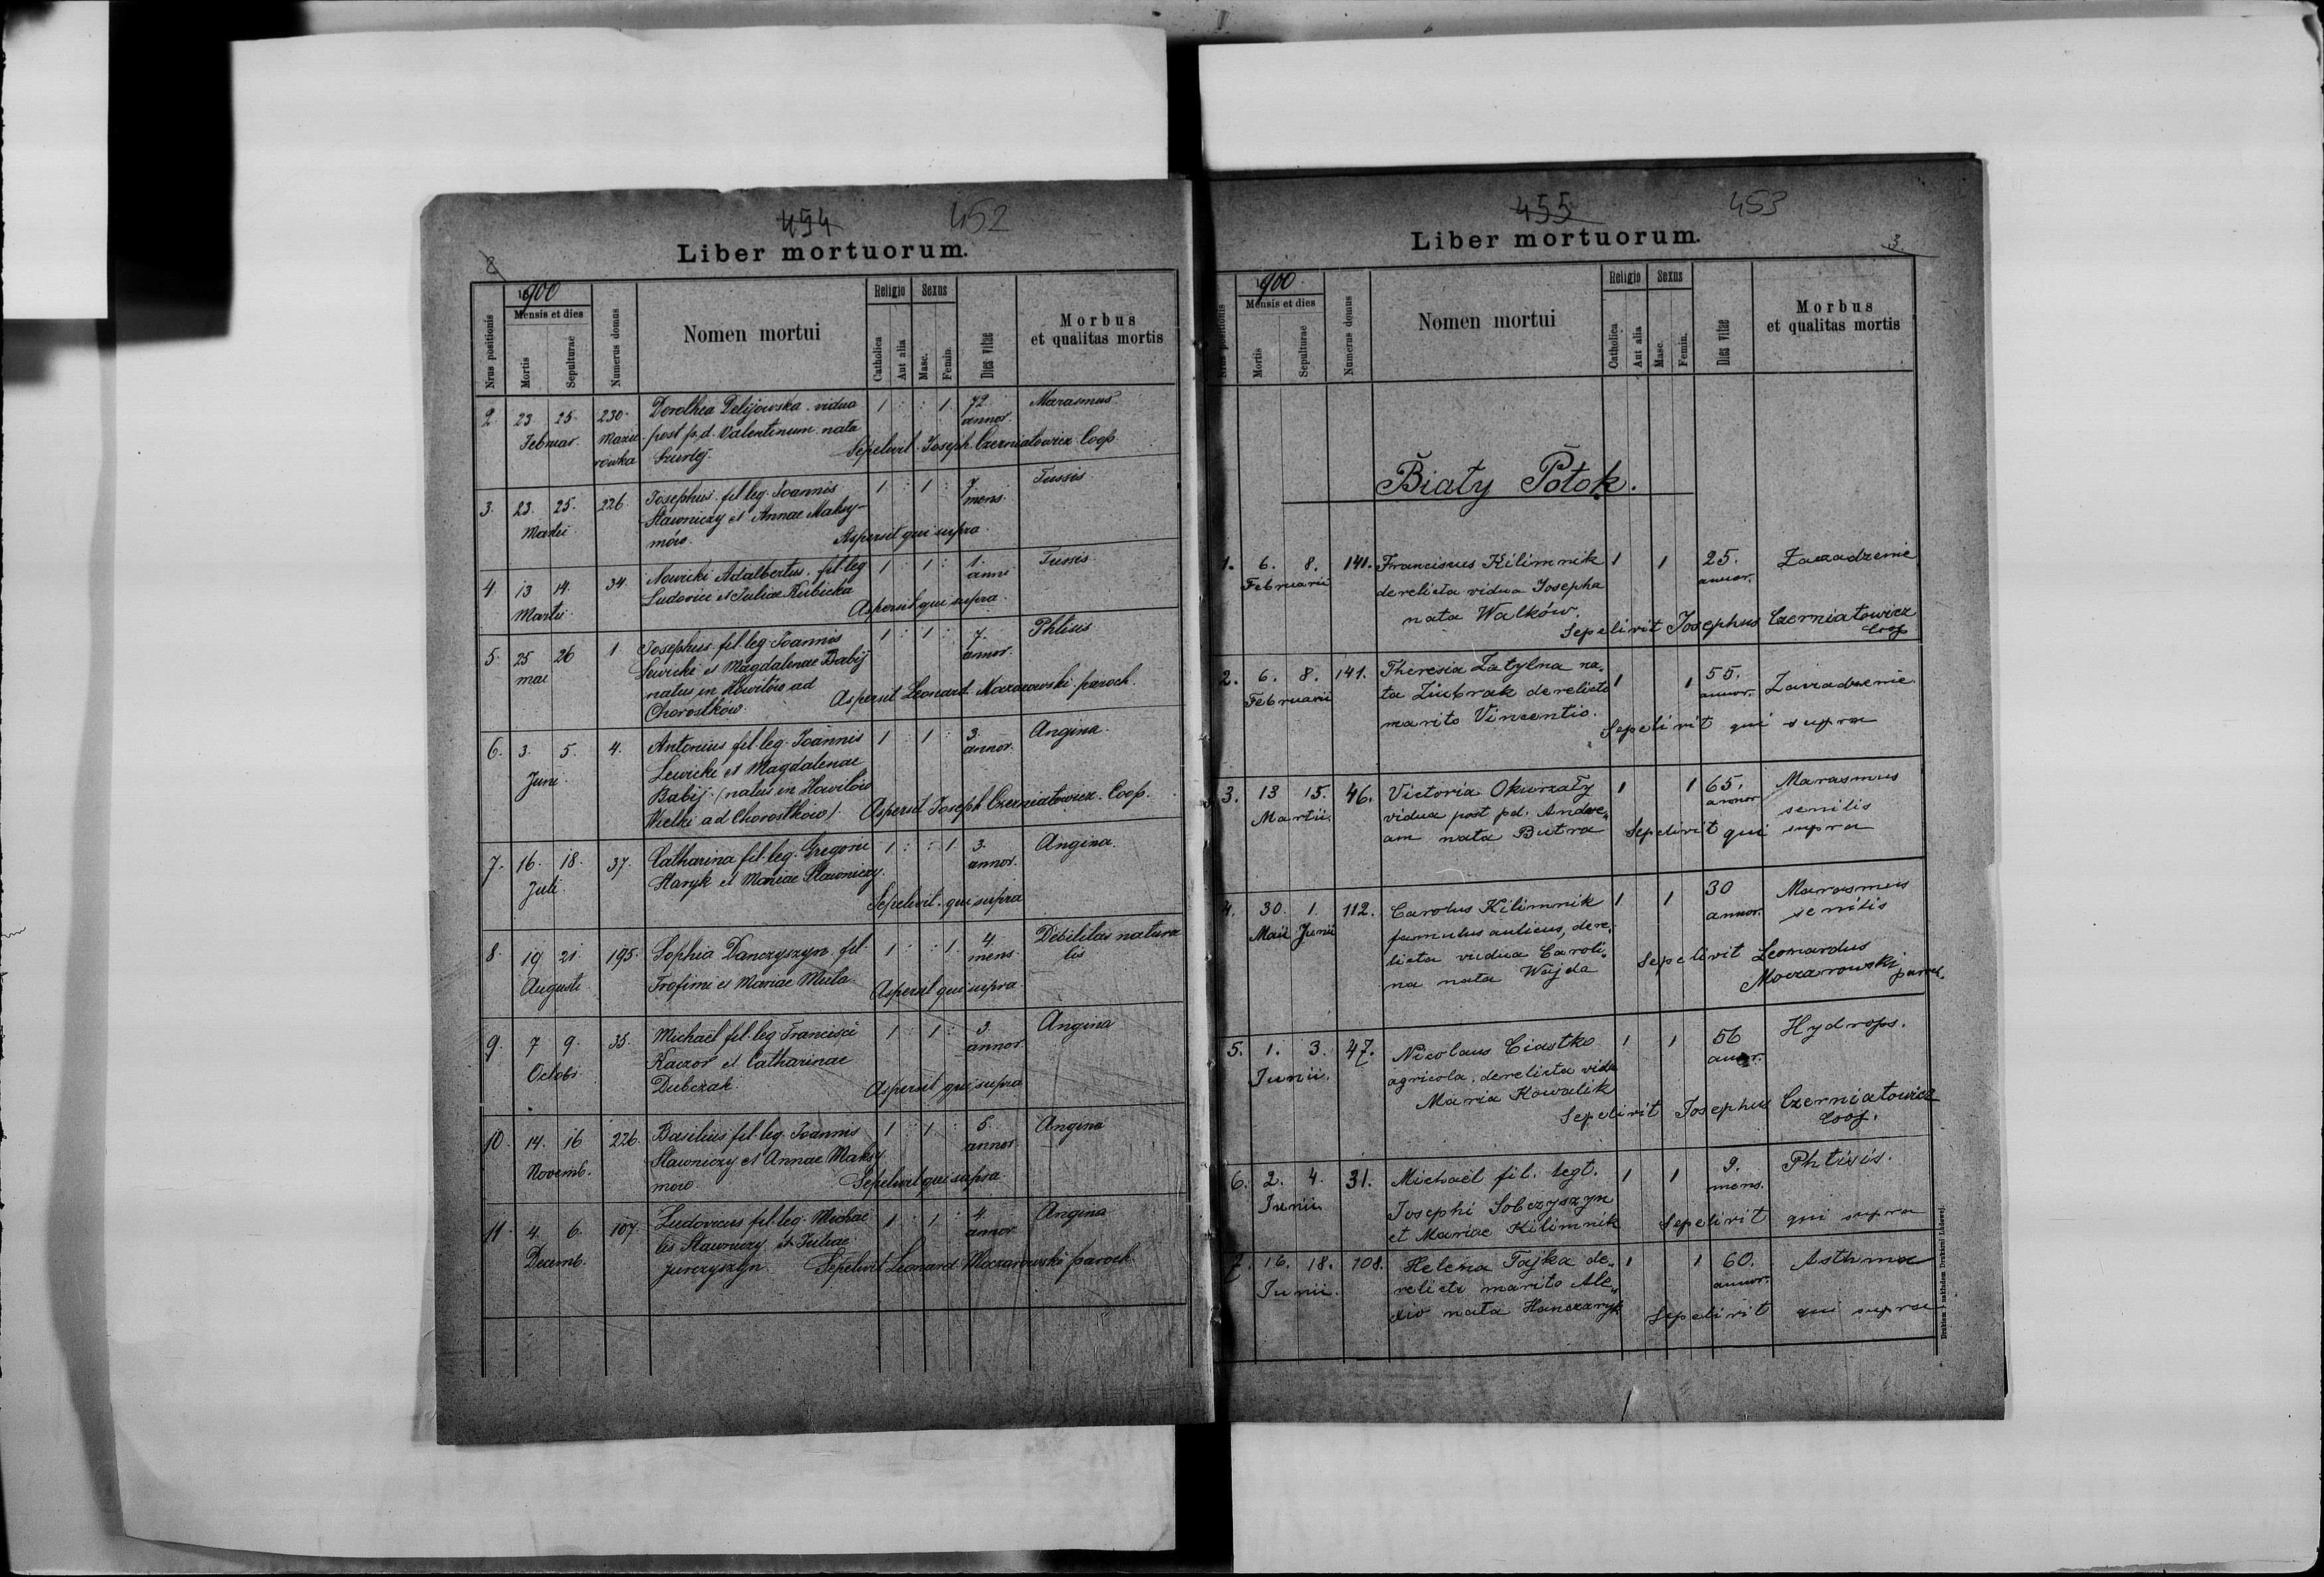 454 452
Liber mortuorum.
2
1900
Nrus positionis
Mensis et dies
Mortis
Sepulturae
Numerus domus
Nomen mortui
Religio
Catholica
Aut alia
Sexus
Masc.
Femin.
Dies vitae
Morbus
et qualitas mortis
2. 23 25. 230. Dorothea Delijowska vidua 1 : : 1 72 Marasmus
Februar. Mazu post p. d. Valentinum nata annor.
rowka Szurlej. Sepelivit Joseph Czerniatowicz Coop.
3. 23. 25. 226. Josephus fil. leg. Joannis 1 : 1 : 7. Tussis
Martii Stawniczy et Annae Maksy- mens.
mów. Aspersit qui supra.
4. 13 14. 34. Nowicki Adalbertus fil. leg 1 : 1 : 1. Tussis
Martii Ludovici et Juliae Kubicka anni
Aspersit qui supra.
5. 25 26 1. Josephus fil. leg. Joannis 1 : 1 : 7. Phtisis
mai Lewicki et Magdalenae Babij annor.
natus in Howilów ad
Chorostków. Aspersit Leonard Moczarowski paroch.
6. 3. 5. 4. Antonius fil. leg. Joannis 1 : 1 : 3. Angina.
Juni Lewicki et Magdalenae annor.
Babij (natus in Howilów
Wielki ad Chorostków). Aspersit Joseph Czerniatowicz Coop.
7. 16. 18. 37. Catharina fil. leg. Gregorii 1 : : 1 3. Angina.
Juli Staryk et Mariae Stawniczy. annor.
Sepelivit qui supra
8. 19 21. 195. Sophia Danczyszyn fil. 1 : : 1. 4. Debilitas natura
Augusti Trofimi et Mariae Muta mens. lis
Aspersit qui supra
9. 7 9. 35. Michaël fil. leg. Francisci 1 : 1 : 3. Angina
Octobr. Kaczor et Catharinae annor
Dubczak. Aspersit qui supra
10. 14. 16 226. Basilius fil. leg. Joannis 1 : 1 : 5. Angina
Novemb. Stawniczy et Annae Maksy annor.
mow. Sepelivit qui supra
11. 4. 6. 107. Ludovicus fil. leg. Michae 1 : 1 : 4. Angina
Decemb. lis Stawniczy et Juliae annor
Jurczyszyn. Sepelivit Leonard Moczarowski paroch
455 453
Liber mortuorum.
3.
1900
Nrus positionis
Mensis et dies
Mortis
Sepulturae
Numerus domus
Nomen mortui
Religio
Catholica
Aut alia
Sexus
Masc.
Femin.
Dies vitae
Morbus
et qualitas mortis
Biały Potok.
1. 6. 8. 141. Franciscus Kilimnik 1 1 25. Zaczadzenie
Februarii derelicta vidua Josepha annor.
nata Walków.
Sepelivit Josephus Czerniatowicz
Coop
2. 6. 8. 141. Theresia Zatylna na„ 1 1 55. Zaczadzenie
Februarii ta Ziubrak derelicto annor.
marito Vincentio. Sepelivit qui supra
3. 13 15. 46. Victoria Okurzały 1 1 65. Marasmus
Martii vidua post pd. Andre„ annor senilis
am nata Butra Sepelivit qui supra
4. 30. 1. 112. Carolus Kilimnik 1 1 30 Marasmus
Maii Junii famulus aulicus, dere„ annor. senilis
licta vidua Caroli„ Sepelivit Leonardus
na nata Wajda Moczarowski paroch.
5. 1. 3. 47. Nicolaus Ciastko 1 1 56 Hydrops.
Junii. agricola, derelicta vidu annor.
Maria Kowalik
Sepelivit Josephus Czerniatowicz
Coop.
6. 2. 4. 31. Michaël fil. legt. 1 1 9. Phtisis.
Junii Josephi Sobczyszyn mens.
et Mariae Kilimnik Sepelivit qui supra
7. 16. 18. 108. Helena Fajka de„ 1 1 60. Asthma
Junii. relicto marito Ale„ annor.
xio nata Hanczaryk Sepelivit qui supra
Drukiem i nakładem Drukarni Ludowej.